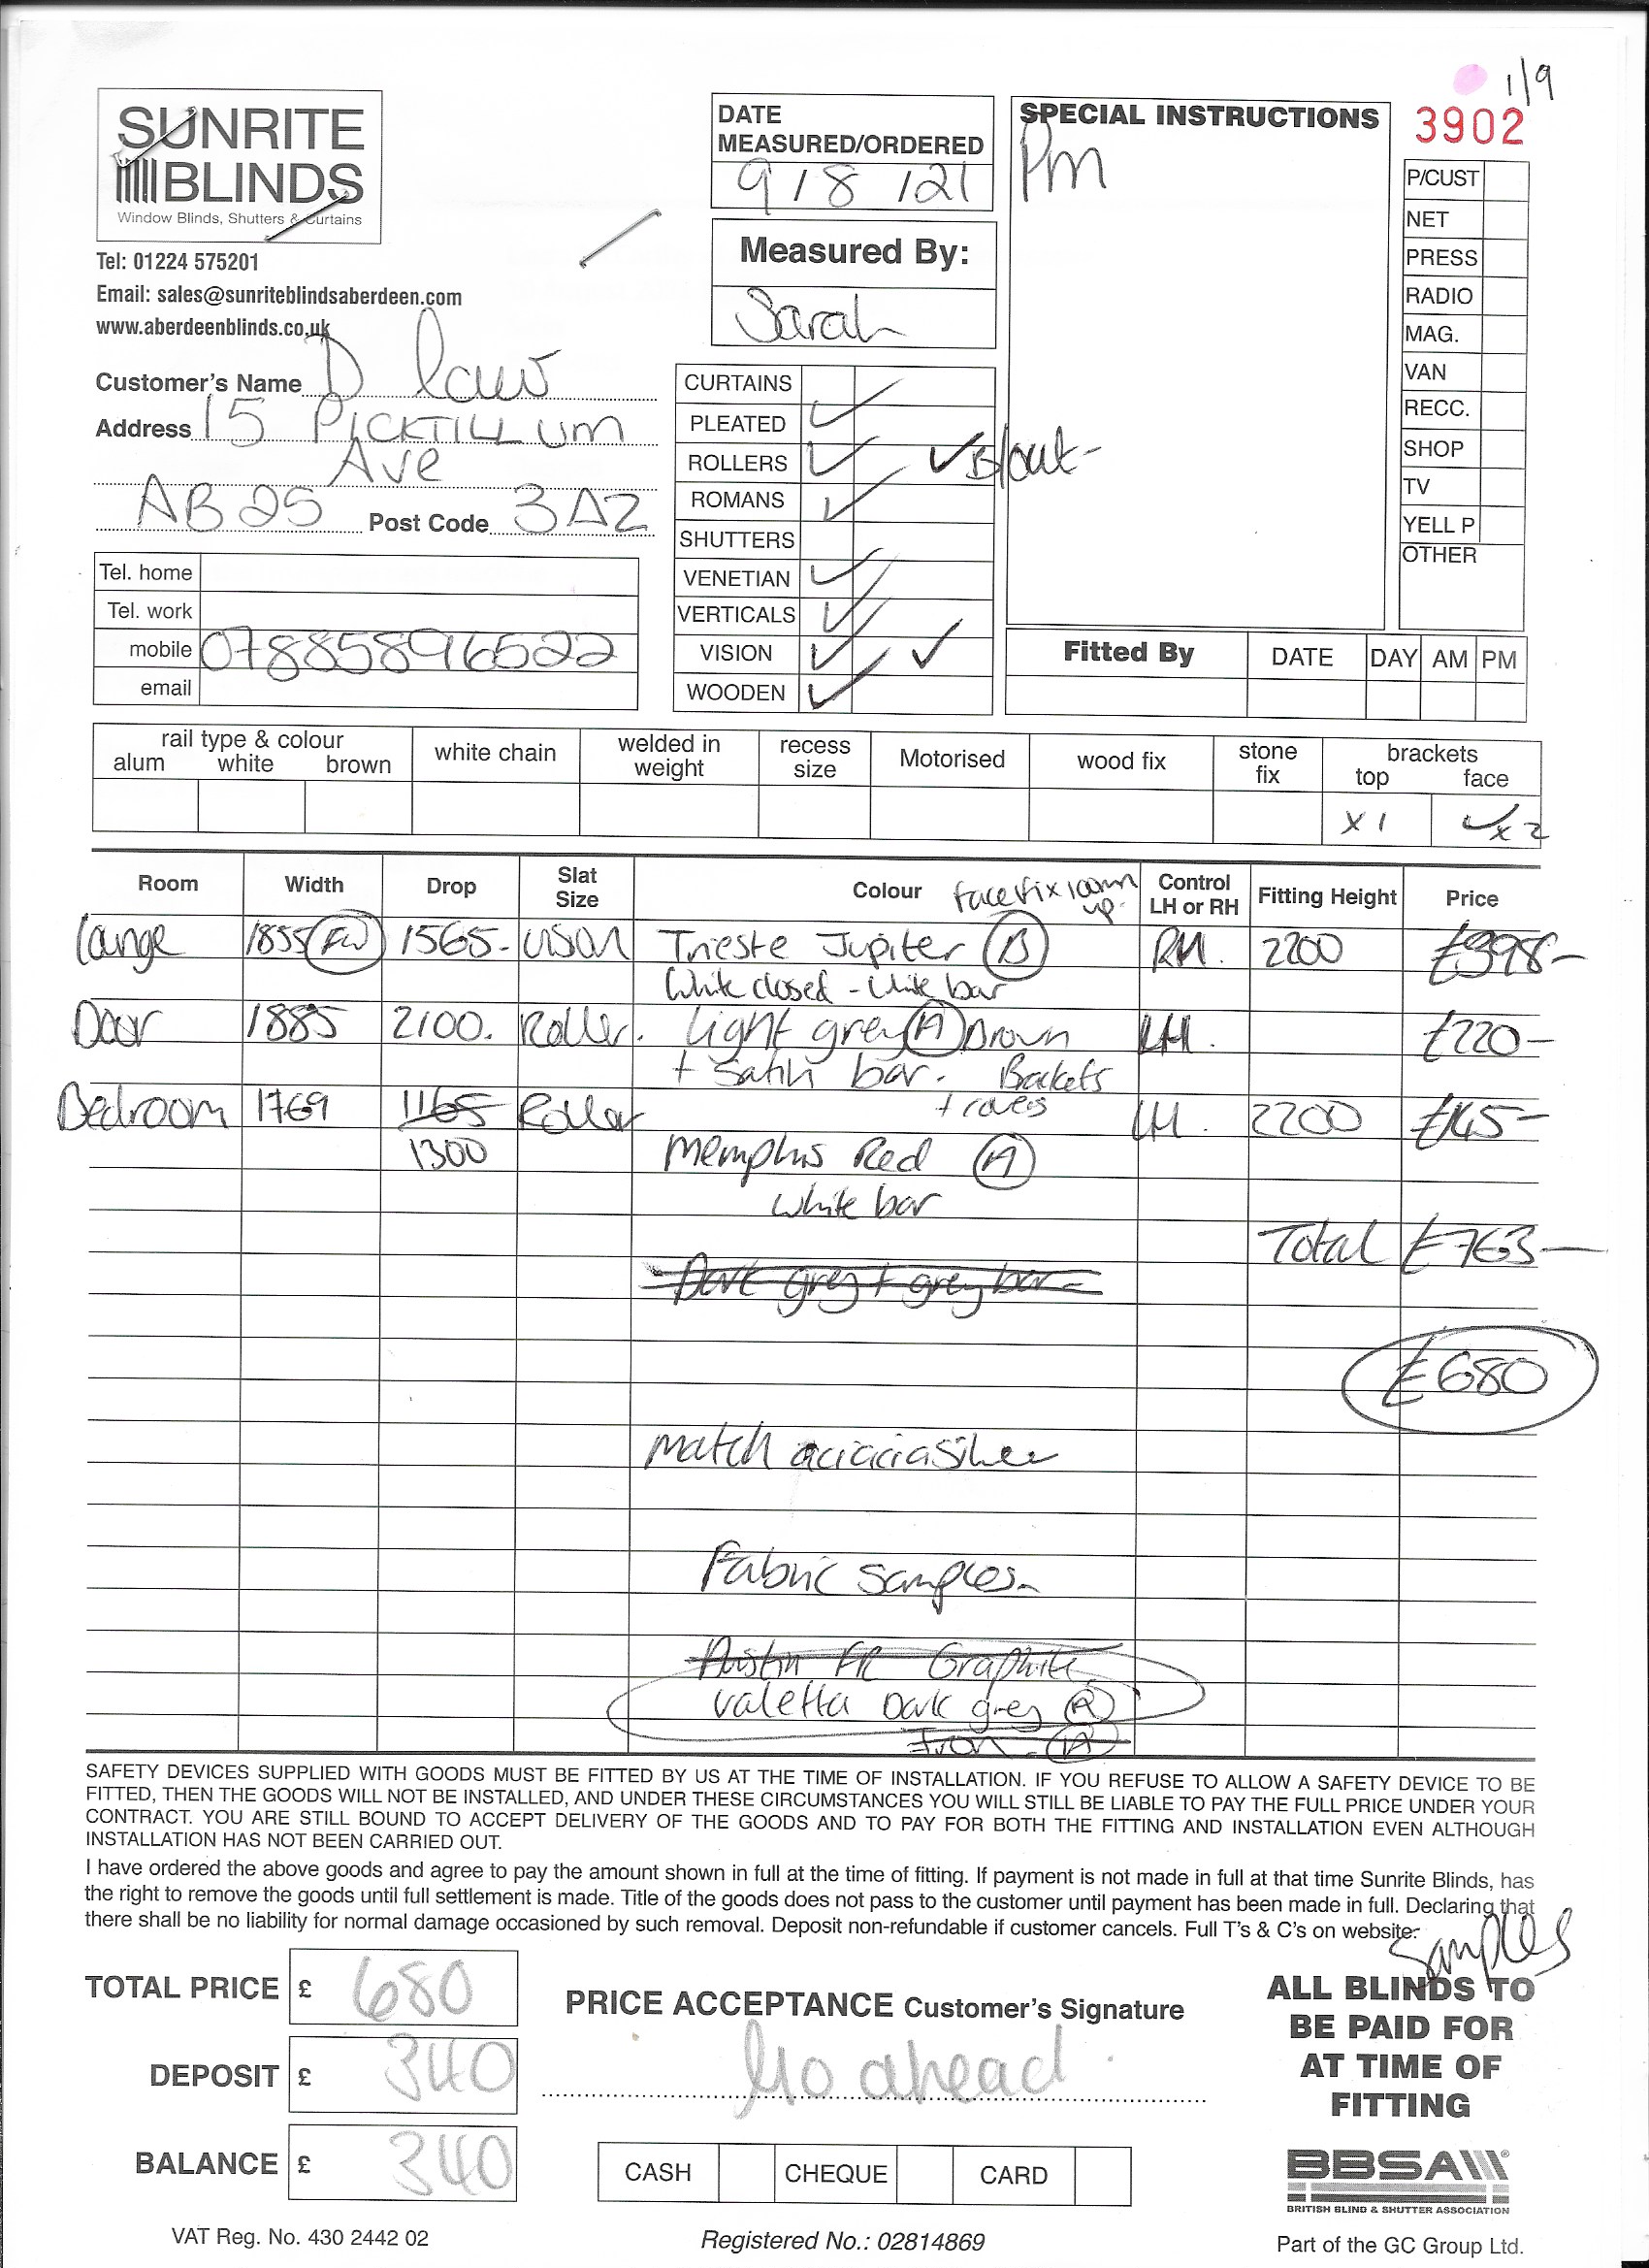 1/9
SUNRITE
BLINDS
Window Blinds, Shutters & Curtains
Tel: 01224 575201
Email: sales@sunriteblindsaberdeen.com
www.aberdeenblinds.co.uk
DATE
MEASURED/ORDERED
9/8/21
Measured By:
Sarah
SPECIAL INSTRUCTIONS
Pm
3902
P/CUST
NET
PRESS
RADIO
MAG.
VAN
RECC.
SHOP
TV
YELL P
OTHER
Customer's Name D Law
Address 15 PICKTILLUM
Ave
AB25 Post Code 3AZ
Tel. home
Tel. work
mobile 07885896522
email
CURTAINS
PLEATED ✓
ROLLERS ✓ ✓ B/out-
ROMANS ✓
SHUTTERS
VENETIAN ✓
VERTICALS ✓
VISION ✓ ✓
WOODEN ✓
Fitted By DATE DAY AM PM
rail type & colour
alum white brown
white chain
welded in weight
recess size
Motorised
wood fix
stone fix
brackets
top face
x 1 ✓ x 2
Room Width Drop Slat Size Colour face fix 100mm up- Control LH or RH Fitting Height Price
Lounge 1855 (FW) 1565- Vision Trieste Jupiter (B) RH. 2200 £398-
White closed - white bar
Door 1885 2100. Roller. Light grey (A) Brown LH. £220-
+ satin bar. Brackets
Bedroom 1769 1165 Roller LH. 2200 £145-
1300 Memphis Red (A)
white bar
Total £763-
Dark grey + grey bar
£680
Match aciacia Silver
Fabric samples-
Austin FR Graphite
Valetta Dark grey (A)
Iron - (A)
SAFETY DEVICES SUPPLIED WITH GOODS MUST BE FITTED BY US AT THE TIME OF INSTALLATION. IF YOU REFUSE TO ALLOW A SAFETY DEVICE TO BE
FITTED, THEN THE GOODS WILL NOT BE INSTALLED, AND UNDER THESE CIRCUMSTANCES YOU WILL STILL BE LIABLE TO PAY THE FULL PRICE UNDER YOUR
CONTRACT. YOU ARE STILL BOUND TO ACCEPT DELIVERY OF THE GOODS AND TO PAY FOR BOTH THE FITTING AND INSTALLATION EVEN ALTHOUGH
INSTALLATION HAS NOT BEEN CARRIED OUT.
I have ordered the above goods and agree to pay the amount shown in full at the time of fitting. If payment is not made in full at that time Sunrite Blinds, has
the right to remove the goods until full settlement is made. Title of the goods does not pass to the customer until payment has been made in full. Declaring that
there shall be no liability for normal damage occasioned by such removal. Deposit non-refundable if customer cancels. Full T's & C's on website.
Samples
TOTAL PRICE £ 680
DEPOSIT £ 340
BALANCE £ 340
PRICE ACCEPTANCE Customer's Signature
Go ahead
CASH CHEQUE CARD
ALL BLINDS TO
BE PAID FOR
AT TIME OF
FITTING
BBSA
BRITISH BLIND & SHUTTER ASSOCIATION
VAT Reg. No. 430 2442 02
Registered No.: 02814869
Part of the GC Group Ltd.